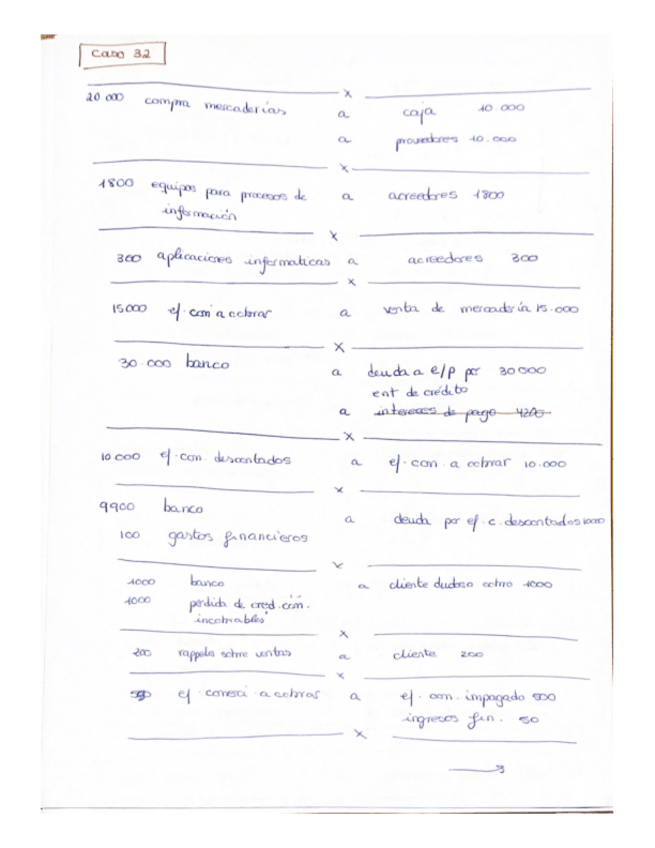 Caso 3.2
x
20 000 compra mercaderias a caja 10.000
a proveedores 10.000
x
1800 equipos para procesos de a acreedores 1800
información
x
300 aplicaciones informaticas a acreedores 300
x
15000 ef. com a cobrar a venta de mercadería 15.000
x
30.000 banco a deuda a e/p por 30000
ent de crédito
a intereses de pago 4200
x
10 000 ef. com. descontados a ef. com. a cobrar 10.000
x
9900 banco
a deuda por ef. c. descontados
100 gastos financieros
x
1000 banco a cliente dudoso cobro 1000
1000 perdida de cred. com.
incobrables
x
200 rappels sobre ventas a cliente 200
x
ef a cobrar a ef. com. impagado 500
ingresos fin. 50
x